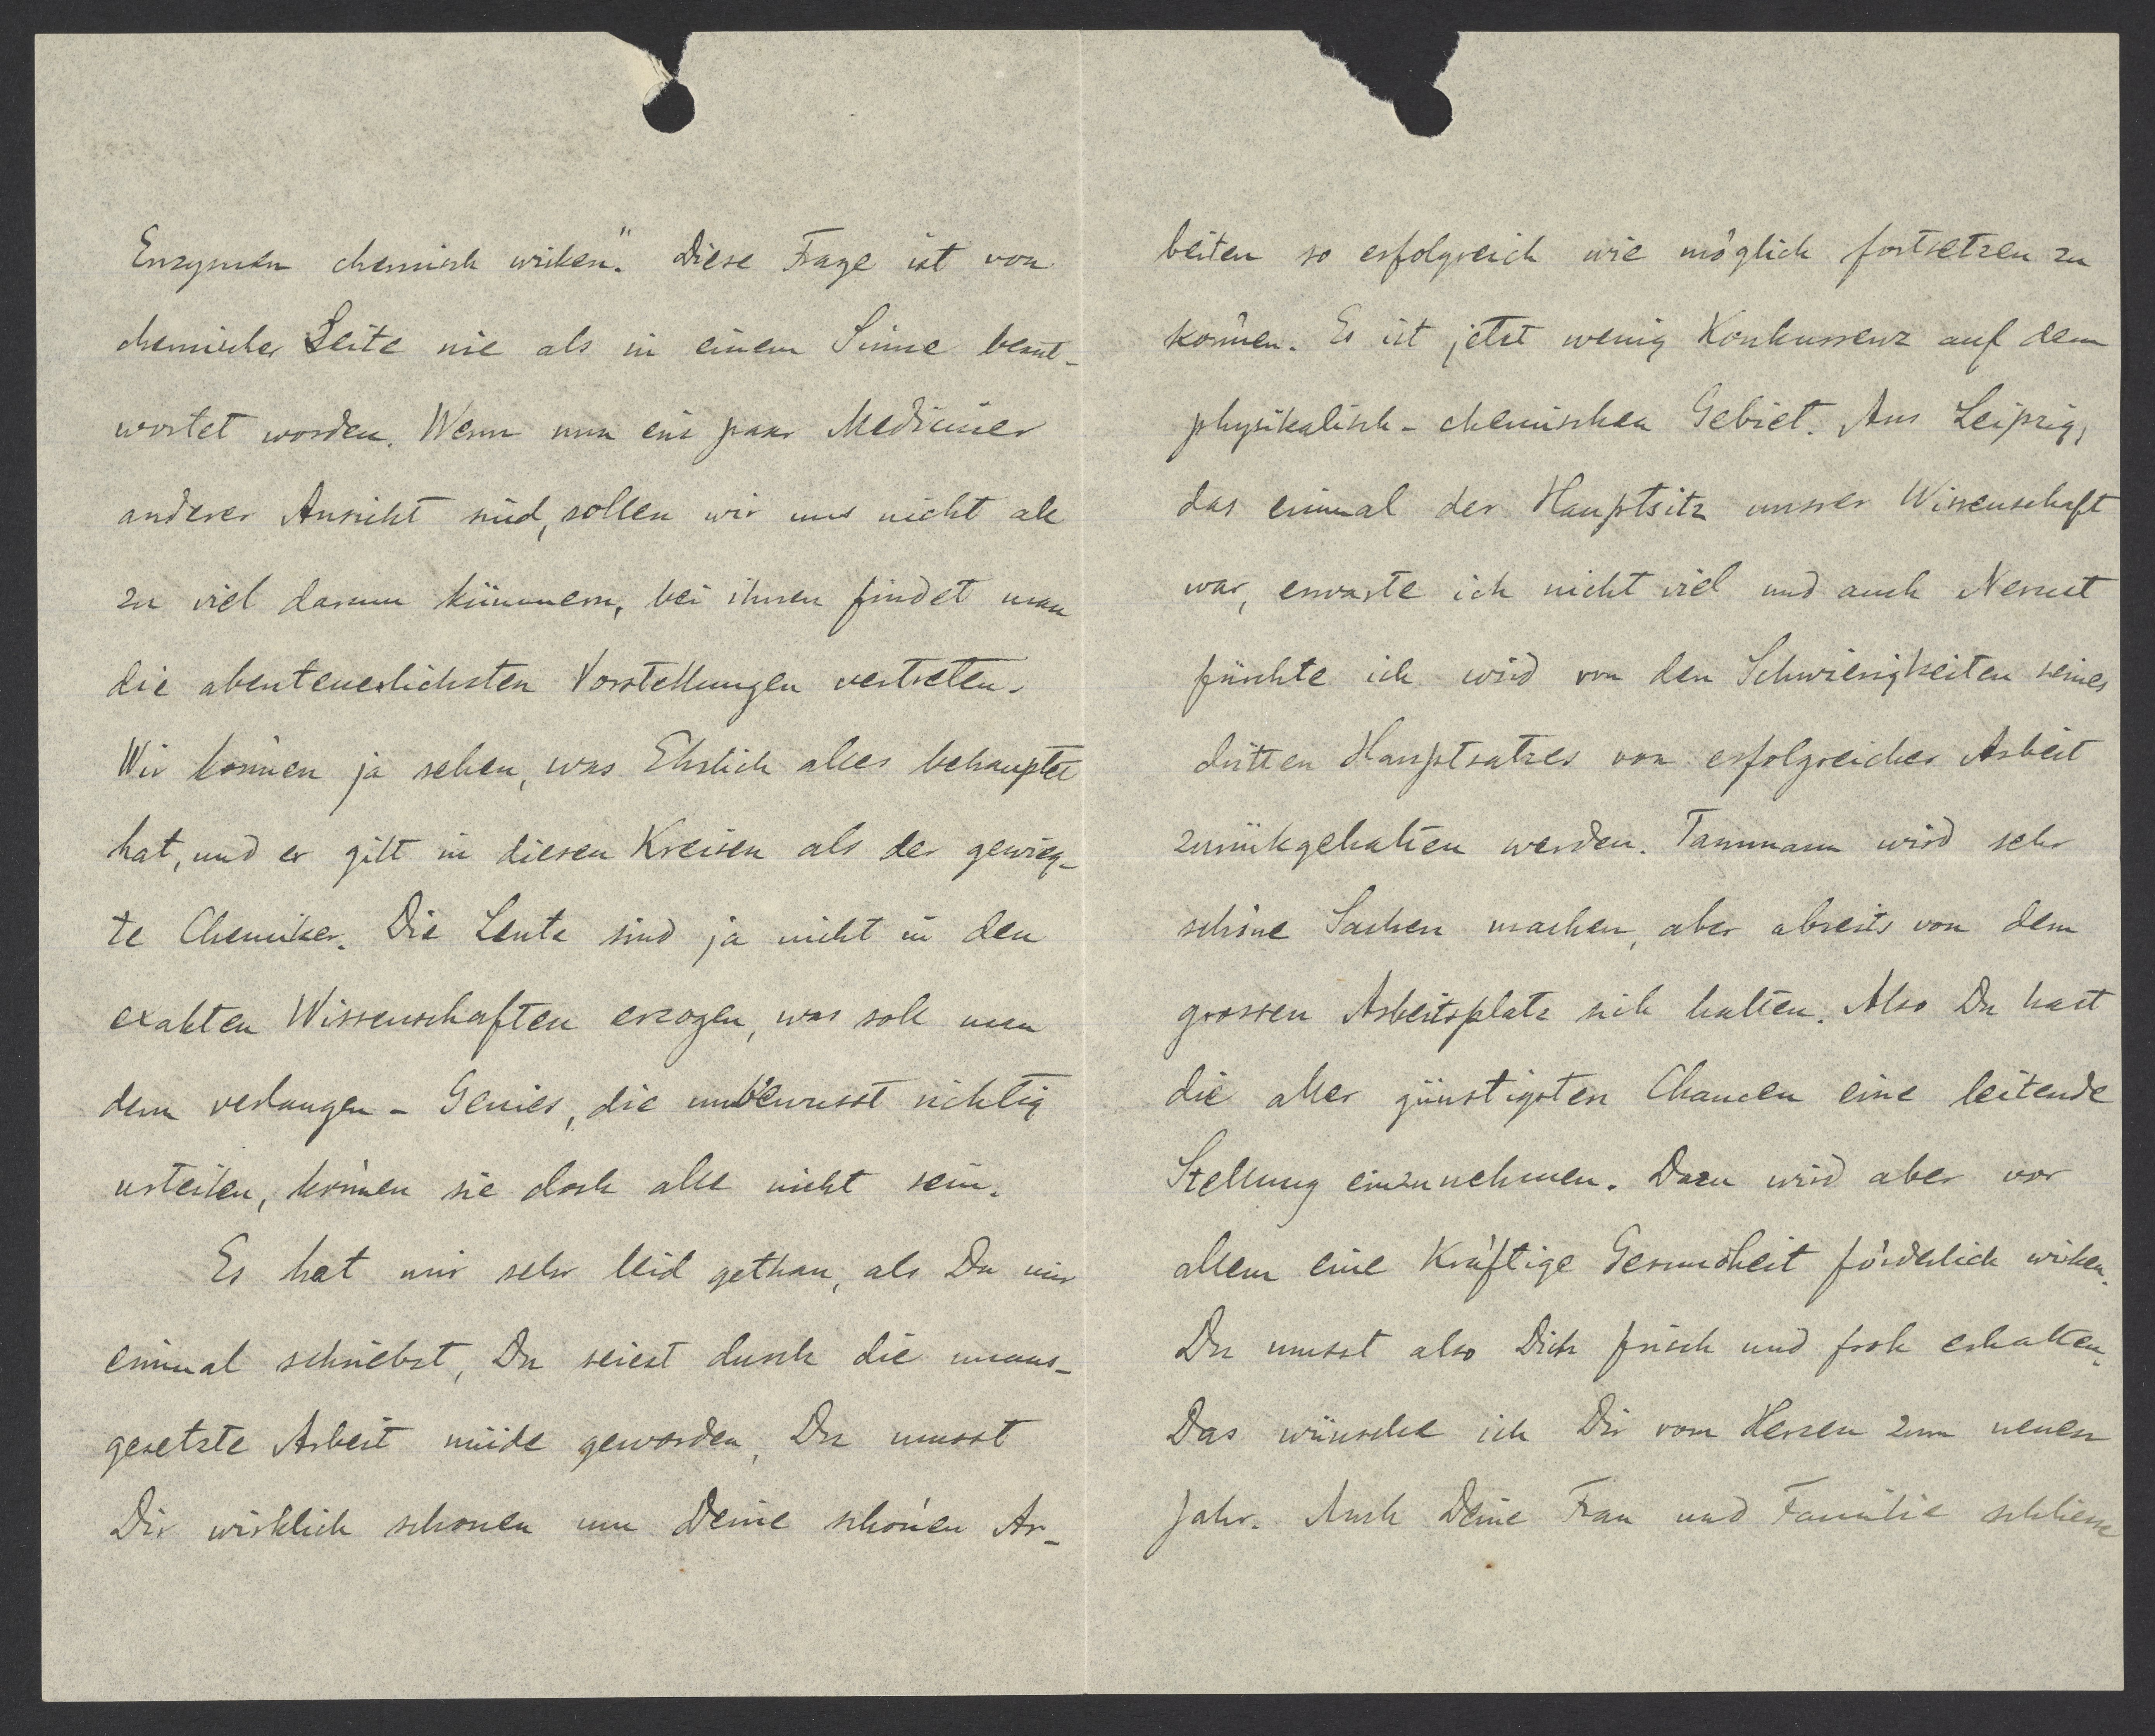 Enzymen chemisch wirken". Diese Frage ist von
chemischer Seite nie als in einem Sinne beant-
wortet worden. Wenn nun ein paar Mediciner
anderer Ansicht sind, sollen wir uns nicht all
zu viel darum kümmern, bei ihnen findet man
die abenteuerlichsten Vorstellungen vertreten.
Wir können ja sehen, was Ehrlich alles behauptet
hat, und er gilt in diesen Kreisen als der gewieg-
te Chemiker. Die Leute sind ja nicht in den
exakten Wissenschaften erzogen, was soll man
denn verlangen - Genies, die unbewusst richtig
urteilen, können sie doch alle nicht sein.
Es hat mir sehr leid gethan, als Du mir
einmal schriebst, Du seiest durch die unaus-
gesetzte Arbeit müde geworden, Du musst
Dir wirklich schonen um Deine schönen Ar-
beiten so erfolgreich wie möglich fortsetzen zu
können. Es ist jetzt wenig Konkurrenz auf dem
physikalisch-chemischen Gebiet. Aus Leipzig,
das einmal der Hauptsitz unsrer Wissenschaft
war, erwarte ich nicht viel und auch Nernst
fürchte ich wird von den Schwierigkeiten seines
dritten Hauptsatzes von erfolgreicher Arbeit
zurückgehalten werden. Tammann wird sehr
schöne Sachen machen, aber abseits von dem
grossen Arbeitsplatz sich halten. Also Du hast
die aller günstigsten Chancen eine leitende
Stellung einzunehmen. Dazu wird aber vor
allem eine kräftige Gesundheit förderlich wirken.
Du musst also Dich frisch und froh erhalten.
Das wünsche ich Dir vom Herzen zum neuen
Jahr. Auch Deine Frau und Familie schliesse